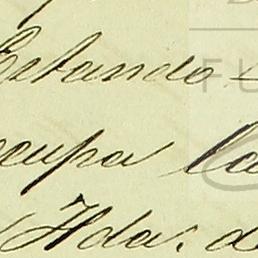 Estando
ocupa la
Hda. de